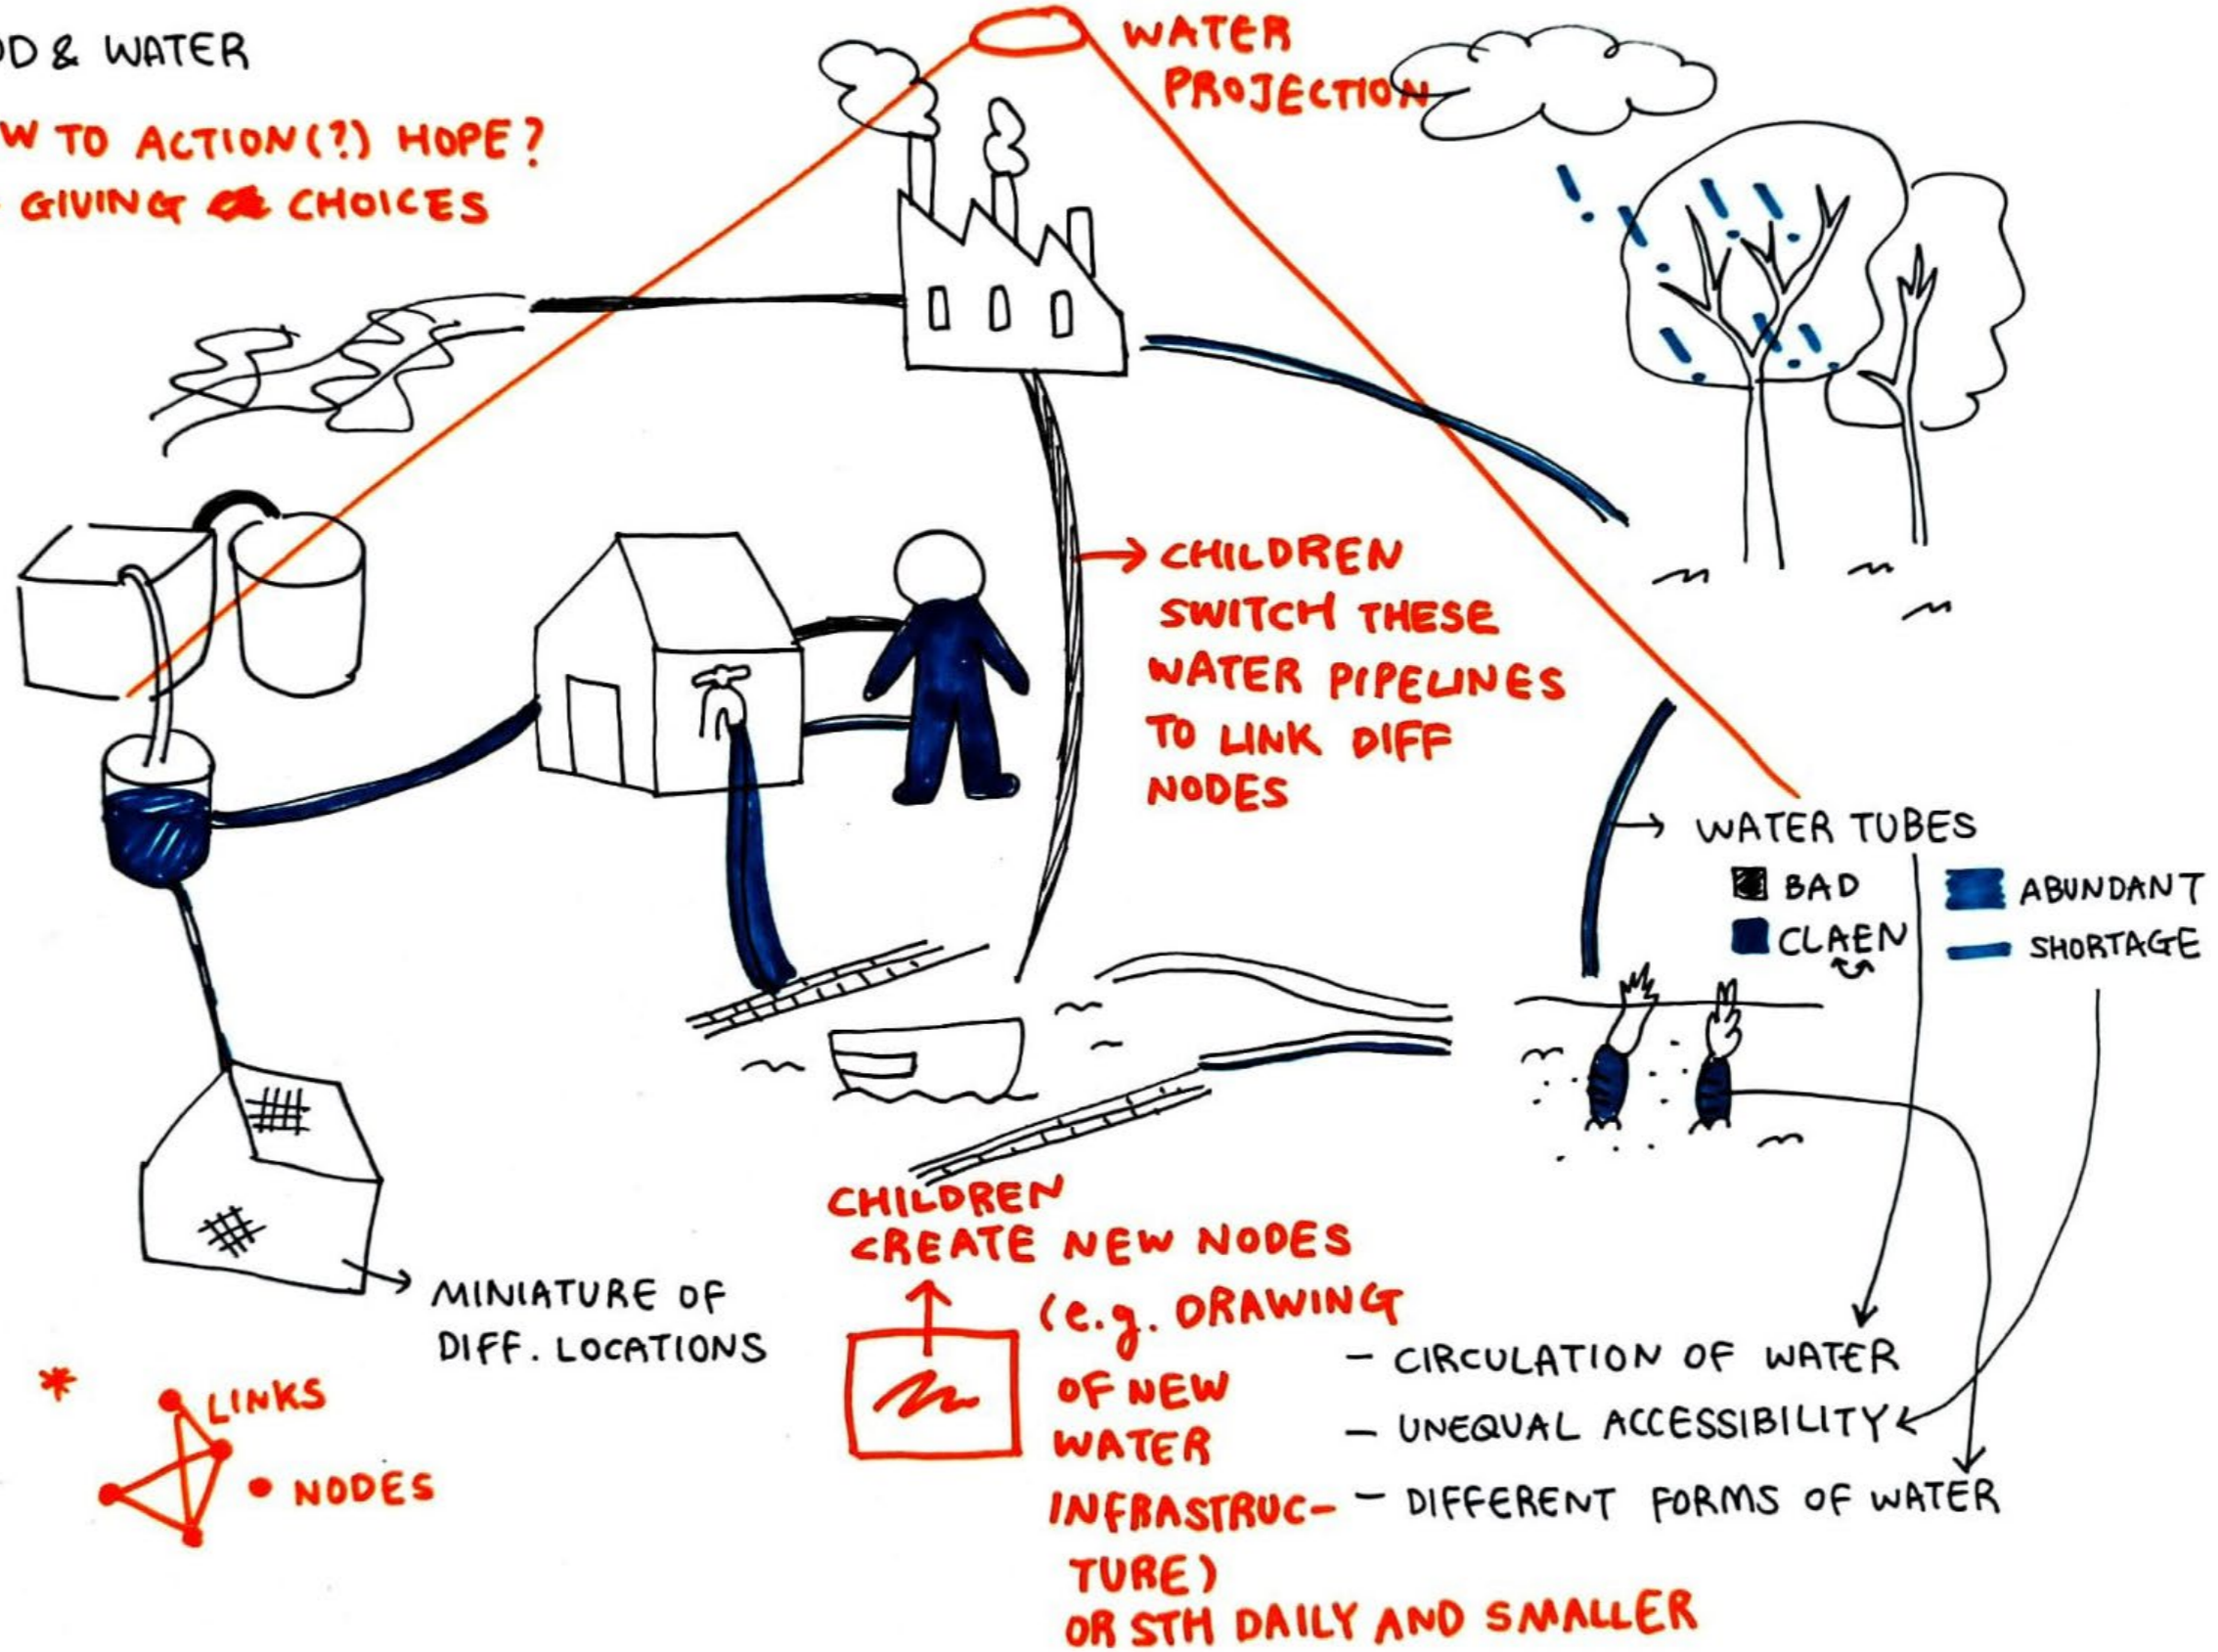 OD & WATER
W TO ACTION(?) HOPE?
GIVING CHOICES
WATER
PROJECTION
CHILDREN
SWITCH THESE
WATER PIPELINES
TO LINK DIFF
NODES
→ WATER TUBES
BAD
CLAEN
ABUNDANT
SHORTAGE
MINIATURE OF
DIFF. LOCATIONS
* LINKS
• NODES
CHILDREN
CREATE NEW NODES
(e.g. DRAWING
OF NEW
WATER
INFRASTRUC-
TURE)
OR STH DAILY AND SMALLER
- CIRCULATION OF WATER
- UNEQUAL ACCESSIBILITY
- DIFFERENT FORMS OF WATER